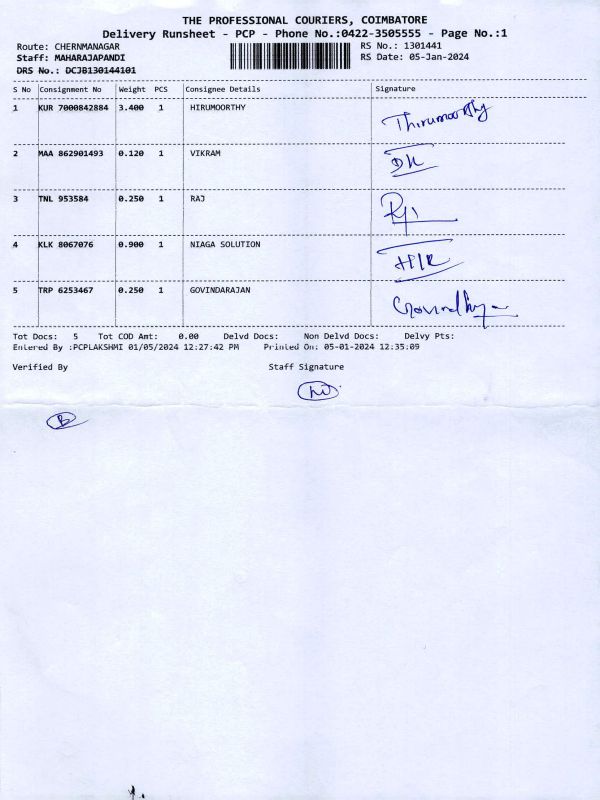 THE PROFESSIONAL COURIERS, COIMBATORE
Delivery Runsheet - PCP - Phone No.:0422-3505555 - Page No.:1
Route: CHERNMANAGAR RS No.: 1301441
Staff: MAHARAJAPANDI RS Date: 05-Jan-2024
DRS No.: DCJB130144101
S No Consignment No Weight PCS Consignee Details Signature
1 KUR 7000842884 3.400 1 HIRUMOORTHY Thirumoorthy
2 MAA 862901493 0.120 1 VIKRAM
3 TNL 953584 0.250 1 RAJ
4 KLK 8067076 0.900 1 NIAGA SOLUTION
5 TRP 6253467 0.250 1 GOVINDARAJAN
Tot Docs: 5 Tot COD Amt: 0.00 Delvd Docs: Non Delvd Docs: Delvy Pts:
Entered By :PCPLAKSHMI 01/05/2024 12:27:42 PM Printed On: 05-01-2024 12:35:09
Verified By Staff Signature
B